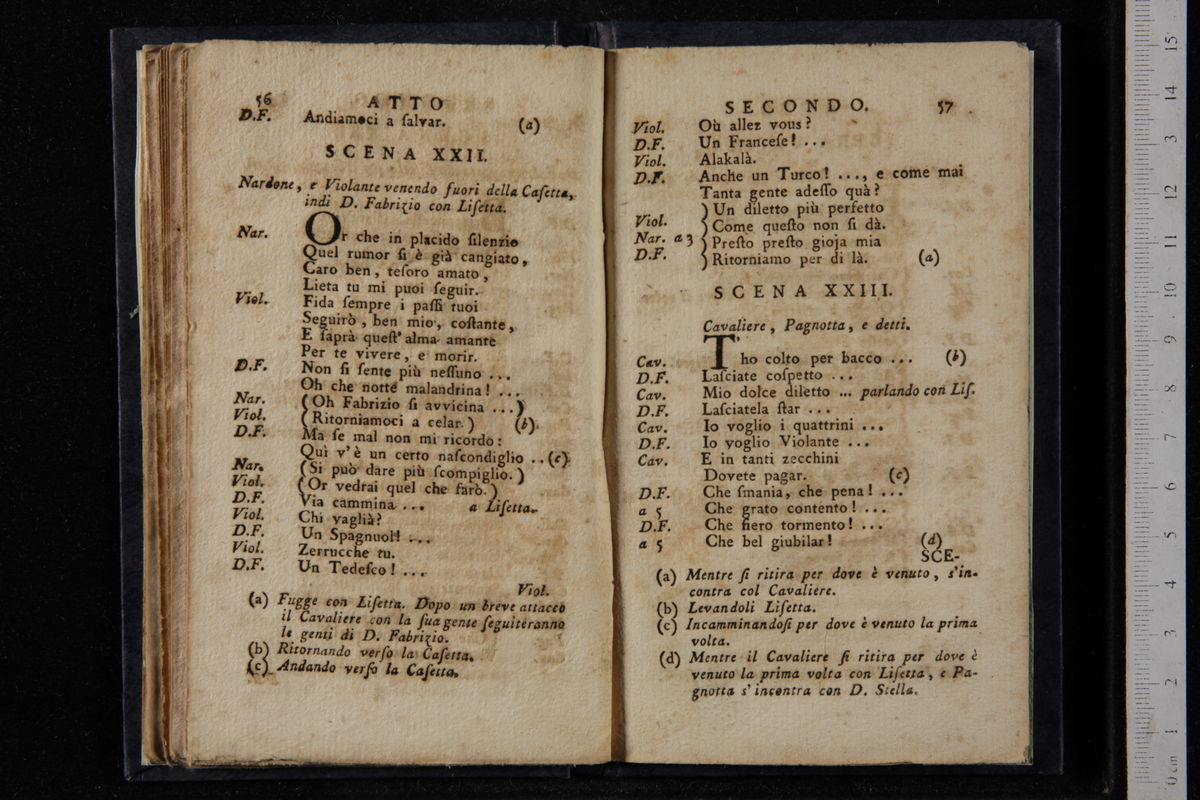 56 ATTO
D.F. Andiamoci a ſalvar. (a)
SCENA XXII.
Nardone, e Violante venendo fuori della Caſetta,
indi D. Fabrizio con Liſetta.
Nar. Or che in placido ſilenzio
Quel rumor ſi è già cangiato,
Caro ben, teſoro amato,
Lieta tu mi puoi ſeguir.
Viol. Fida ſempre i paſſi tuoi
Seguirò, ben mio, coſtante,
E ſaprà queſt' alma amante
Per te vivere, e morir.
D.F. Non ſi ſente più neſſuno ...
Oh che notte malandrina! ...
Nar. (Oh Fabrizio ſi avvicina ...)
Viol. (Ritorniamoci a celar.) (b)
D.F. Ma ſe mal non mi ricordo:
Quì v'è un certo naſcondiglio .. (c)
Nar. (Si può dare più ſcompiglio.)
Viol. (Or vedrai quel che farò.)
D.F. Via cammina ... a Liſetta.
Viol. Chi vaglià?
D.F. Un Spagnuol! ...
Viol. Zerrucche tu.
D.F. Un Tedeſco! ...
Viol.
(a) Fugge con Liſetta. Dopo un breve attacco
il Cavaliere con la ſua gente ſeguiteranno
le genti di D. Fabrizio.
(b) Ritornando verſo la Caſetta.
(c) Andando verſo la Caſetta.
SECONDO. 57
Viol. Où allez vous?
D.F. Un Franceſe! ...
Viol. Alakalà.
D.F. Anche un Turco! ..., e come mai
Tanta gente adeſſo quà?
)Un diletto più perfetto
Viol. )Come queſto non ſi dà.
Nar. a 3 )Preſto preſto gioja mia
D.F. )Ritorniamo per di là. (a)
SCENA XXIII.
Cavaliere, Pagnotta, e detti.
Cav. T' ho colto per bacco ... (b)
D.F. Laſciate coſpetto ...
Cav. Mio dolce diletto ... parlando con Liſ.
D.F. Laſciatela ſtar ...
Cav. Io voglio i quattrini ...
D.F. Io voglio Violante ...
Cav. E in tanti zecchini
Dovete pagar. (c)
D.F. Che ſmania, che pena! ...
a 5 Che grato contento! ...
D.F. Che fiero tormento! ...
a 5 Che bel giubilar! (d)
SCE-
(a) Mentre ſi ritira per dove è venuto, s'in-
contra col Cavaliere.
(b) Levandoli Liſetta.
(c) Incamminandoſi per dove è venuto la prima
volta.
(d) Mentre il Cavaliere ſi ritira per dove è
venuto la prima volta con Liſetta, e Pa-
gnotta s'incontra con D. Stella.
0 cm 1 2 3 4 5 6 7 8 9 10 11 12 3 14 15